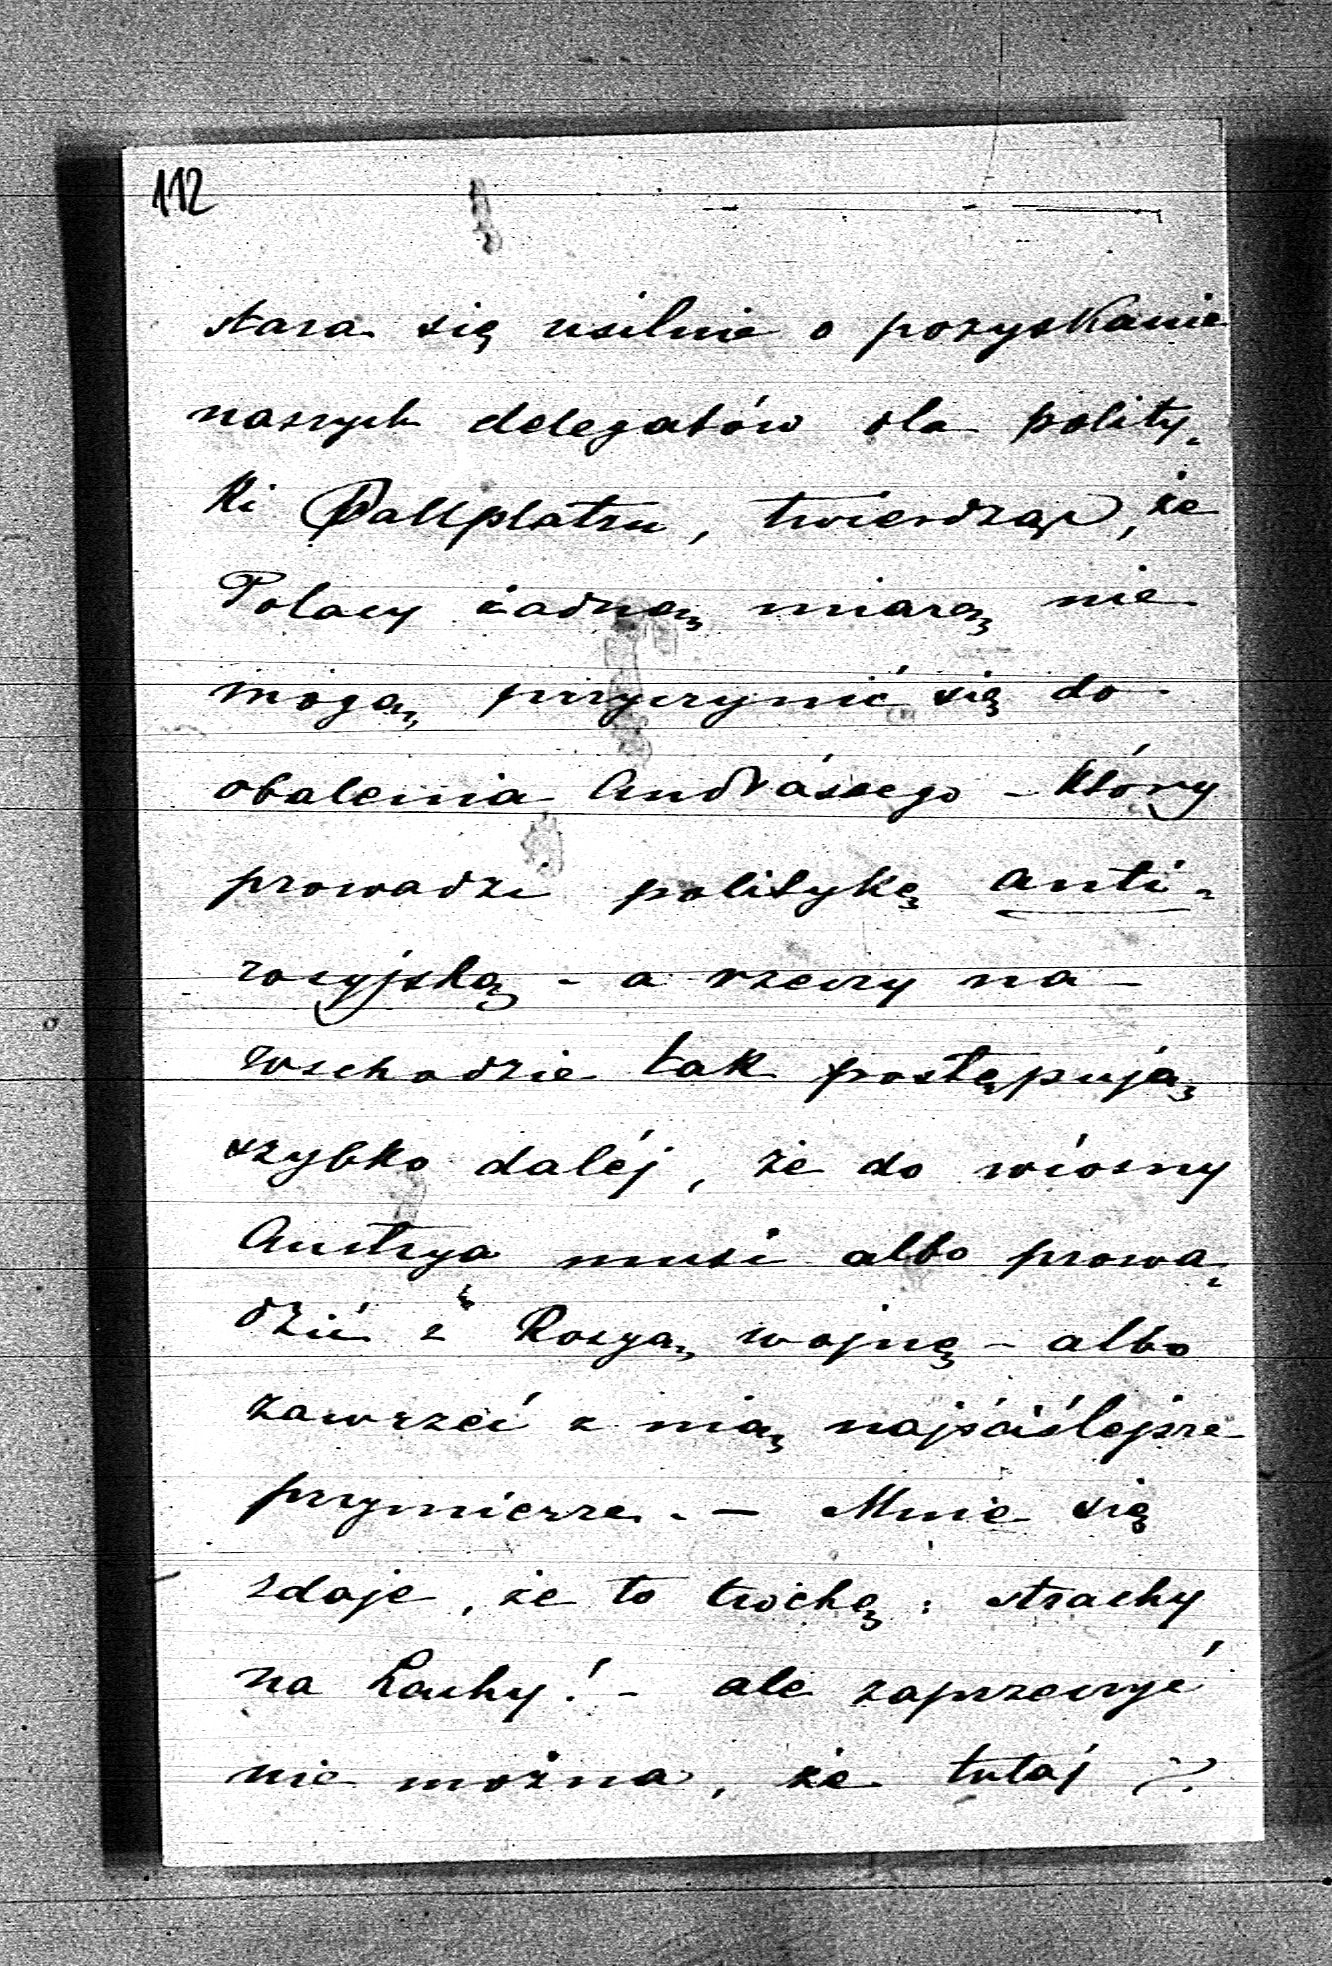 112
stara się usilnie o pozyskanie
naszych delegatów dla polity-
ki Ballplatzu, twierdząc, że
Polacy żadną miarą nie
mogą przyczynić się do
obalenia Andrássego - który
prowadzi politykę anti-
rosyjską - a rzeczy na
wschodzie tak postępują
szybko daléj, że do wiosny
Austrya musi albo prowa-
dzić z Rosyą wojnę - albo
zawrzeć z nią najściślejsze
przymierze. - Mnie się
zdaje, że to trochę: strachy
na Lachy! - ale zaprzeczyć
nie można, że tutaj